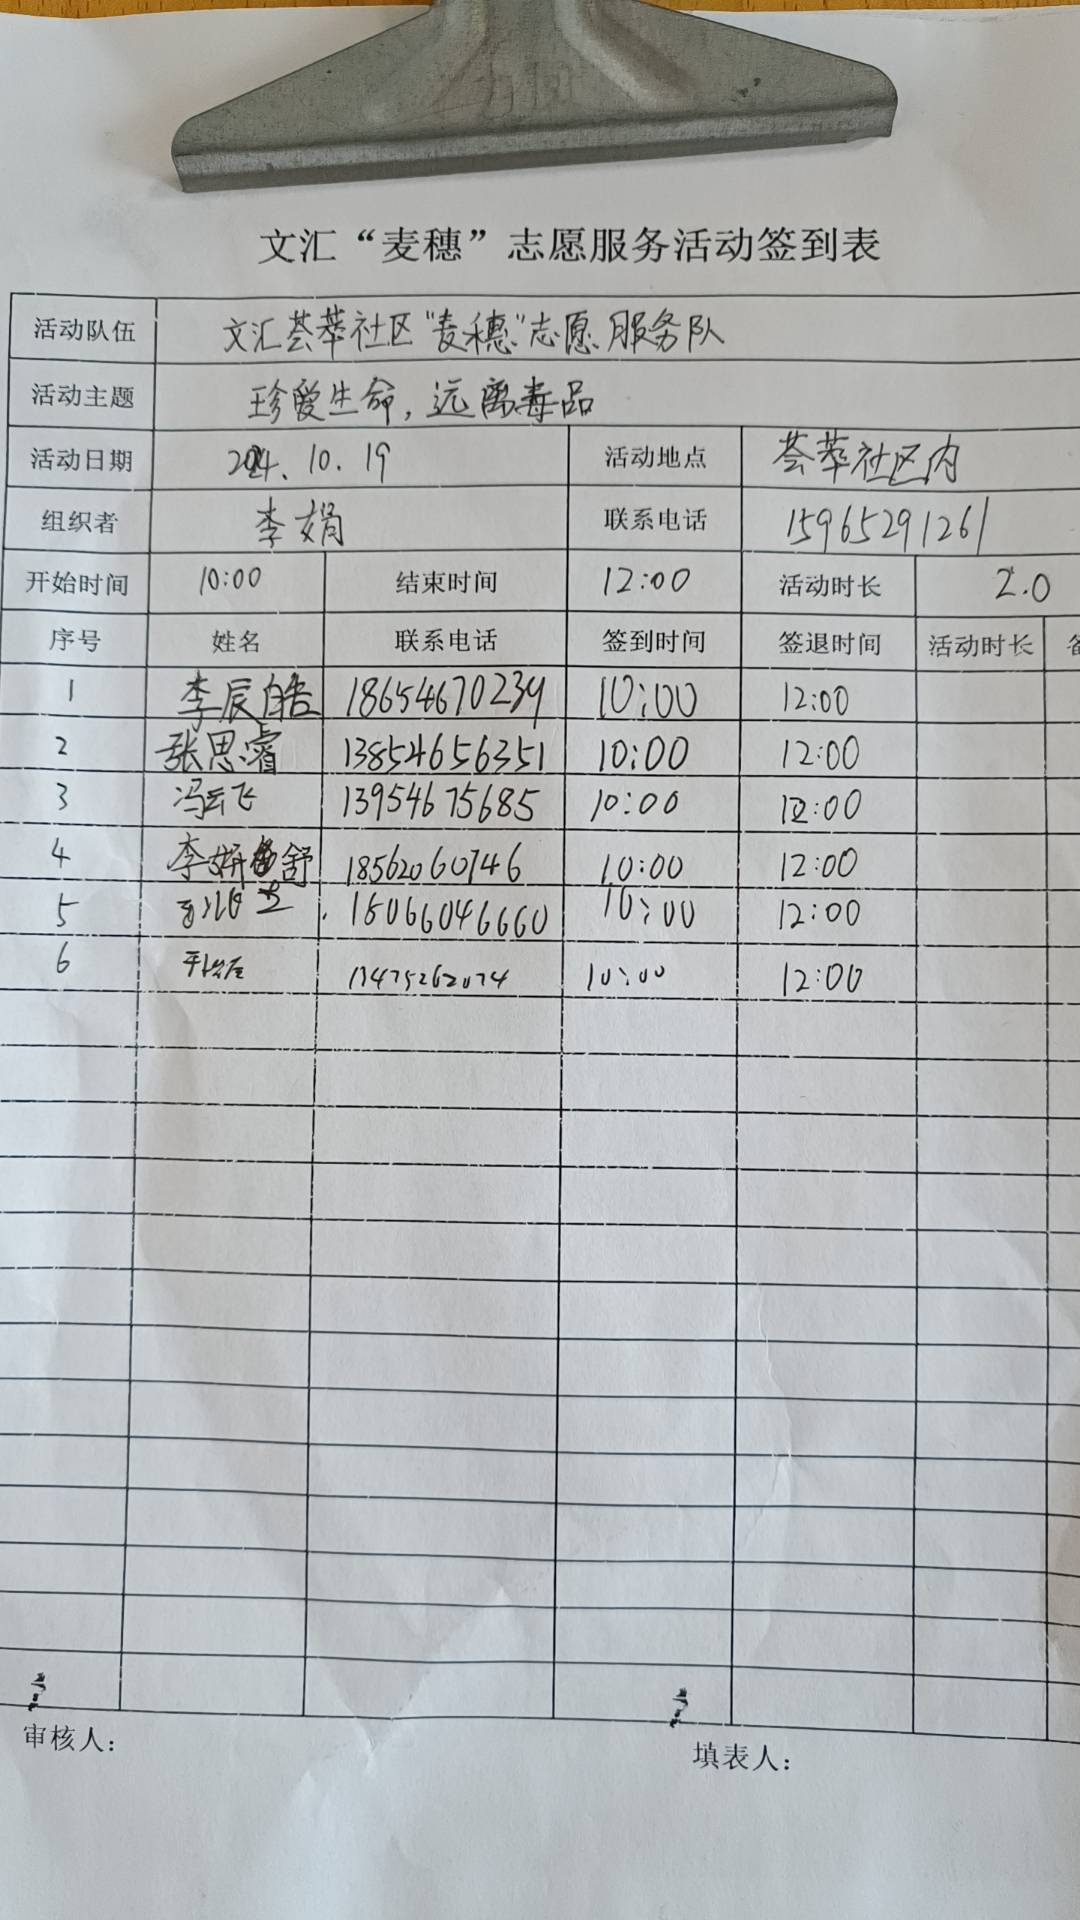 文汇“麦穗”志愿服务活动签到表
活动队伍 文汇荟萃社区“麦穗”志愿服务队
活动主题 珍爱生命，远离毒品
活动日期 2024.10.19 活动地点 荟萃社区内
组织者 李娟 联系电话 15965291261
开始时间 10:00 结束时间 12:00 活动时长 2.0
序号 姓名 联系电话 签到时间 签退时间 活动时长
1 李辰皓 18654670239 10:00 12:00
2 张思睿 13854656351 10:00 12:00
3 冯云飞 13954675685 10:00 12:00
4 李妍舒 18562060746 10:00 12:00
5 18066046660 10:00 12:00
6 13475262074 10:00 12:00
审核人： 填表人：